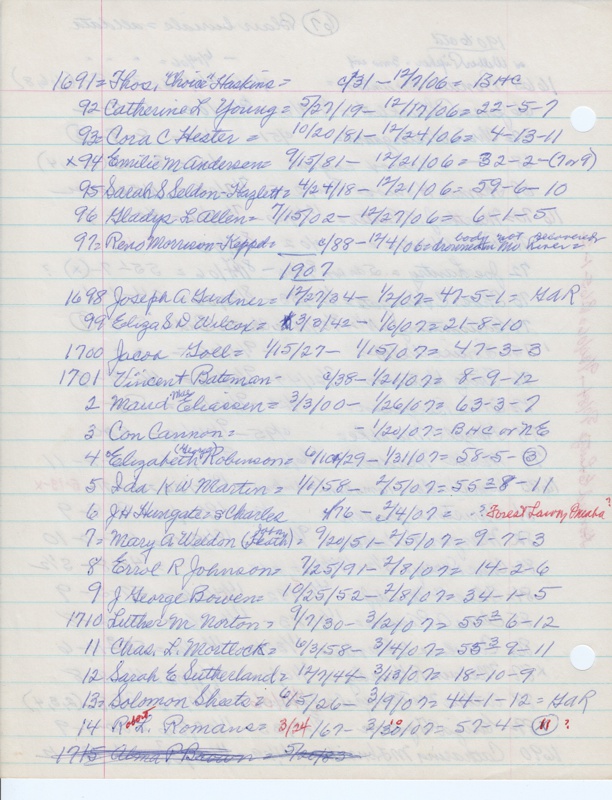 1691= Thos. "Choice" Haskins = c/31 - 12/7/06 = BHC
92 Catherine L. Young = 5/27/19 - 12/17/06 = 22-5-7
93= Cora C Hester = 10/20/81 - 12/24/06 = 4-13-11
x94 Emilie M Anderson = 9/15/81 - 12/21/06 = 32-2-(7 or 9)
95 Sarah S Seldon-Hazlett = 4/24/18 - 12/21/06 = 59-6-10
96 Gladys L Allen = 7/15/02 - 12/27/06 = 6-1-5
97= Reno Morrison - c/88 - 12/4/06 = drowned in Mo. River = body not recovered
1907
1698 Joseph A Gardner = 12/27/34 - 1/2/07 = 47-5-1 = GAR
99 Eliza S D Wilcox = 3/3/42 - 1/6/07 = 21-8-10
1700 Jacob Goll = 1/15/27 - 1/15/07 = 47-3-3
1701 Vincent Bateman - c/38 - 1/21/07 = 8-9-12
2 Maud Mae Eliassen = 3/3/00 - 1/26/07 = 63-3-7
3 Con Cannon = - 1/20/07 = BHC or NE
4 Elizabeth Robinson = /29 - 1/31/07 = 58-5-(3)
5 Ida K W Martin = 1/1/58 - 2/5/07 = 55 8-11
6 J H Hungate = Charles c/76 - 2/4/07 = ? Forest Lawn, Omaha ?
7= Mary A Weldon (Heath) = 9/20/51 - 2/5/07 = 9-7-3
8 Errol R Johnson = 7/25/91 - 2/8/07 = 14-2-6
9 J George Bowen = 10/25/52 - 2/8/07 = 34-1-5
1710 Luther M Norton = 9/7/30 - 3/2/07 = 55² 6-12
11 Chas. L. Mortlock = 6/3/58 - 3/4/07 = 55 9-11
12 Sarah E Sutherland = 12/7/44 - 3/13/07 = 18-10-9
13= Solomon Sheets = 6/5/26 - 3/9/07 = 44-1-12 = GAR
14 Robert L. Romans = 3/24/67 - 3/10/07 = 57-4-(11) ?
1715 Alma P Brown = 5/20/85 =